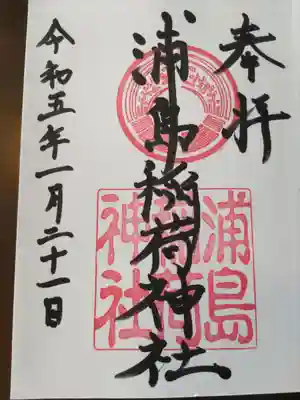 奉拝
浦島稲荷神社
浦島
稲荷
神社
令和五年一月二十一日